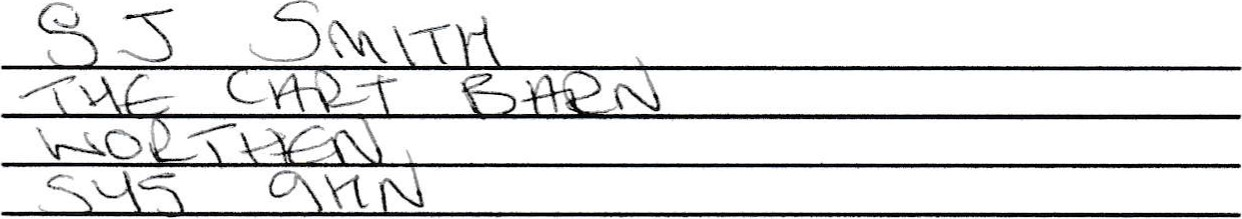 S J SMITH
THE CART BARN
WORTHEN
SY5 9HN